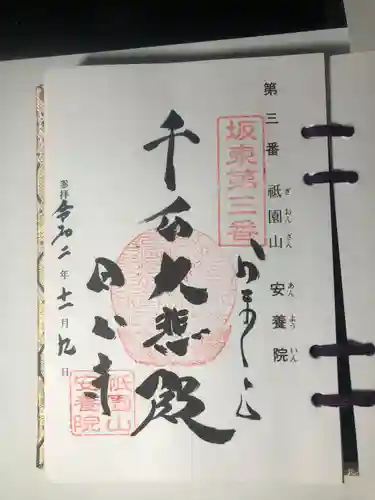 第三番 祇園山 安養院
ぎおんざん あんよういん
坂東第三番
千手大悲殿
参拝 令和二年十一月九日
祇園山
安養院